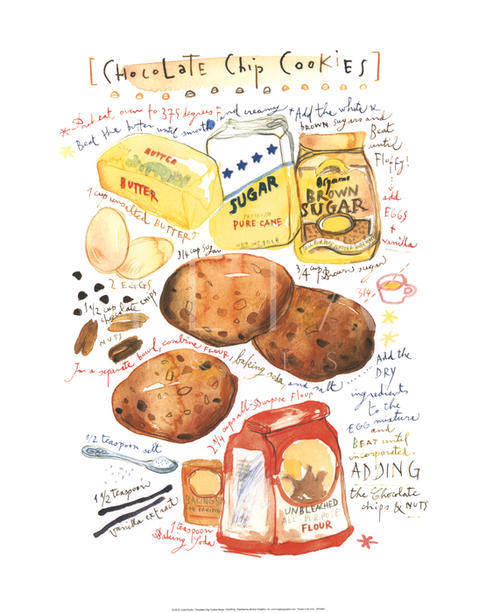 [CHOCOLATE CHIP COOKIES]
* Preheat oven to 375 degrees F
Beat the butter until smooth and creamy
* Add the white & brown sugars and
Beat
until
Fluffy!
add
EGGS
+
vanilla
BUTTER
BUTTER
SUGAR
PREMIUM
PURE CANE
NET WT
Organic
BROWN
SUGAR
1 cup unsalted BUTTER
3/4 cup sugar
3/4 cup Brown sugar
2 EGGS
1 1/2 cup
chocolate
CHIPS
NUTS
3/4
In a separate bowl, combine FLOUR, baking soda, and salt
Add the
DRY
ingredients
to the
EGG mixture
and
BEAT until
incorporated.
ADDING
the Chocolate
chips & NUTS
2 1/4 cup all-Purpose Flour
1/2 teaspoon salt
1 1/2 teaspoon
vanilla extract
BAKING
1 teaspoon
Baking Soda
UNBLEACHED
ALL PURPOSE
FLOUR